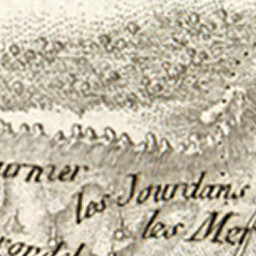 urnier
les Jourdains
les Mer